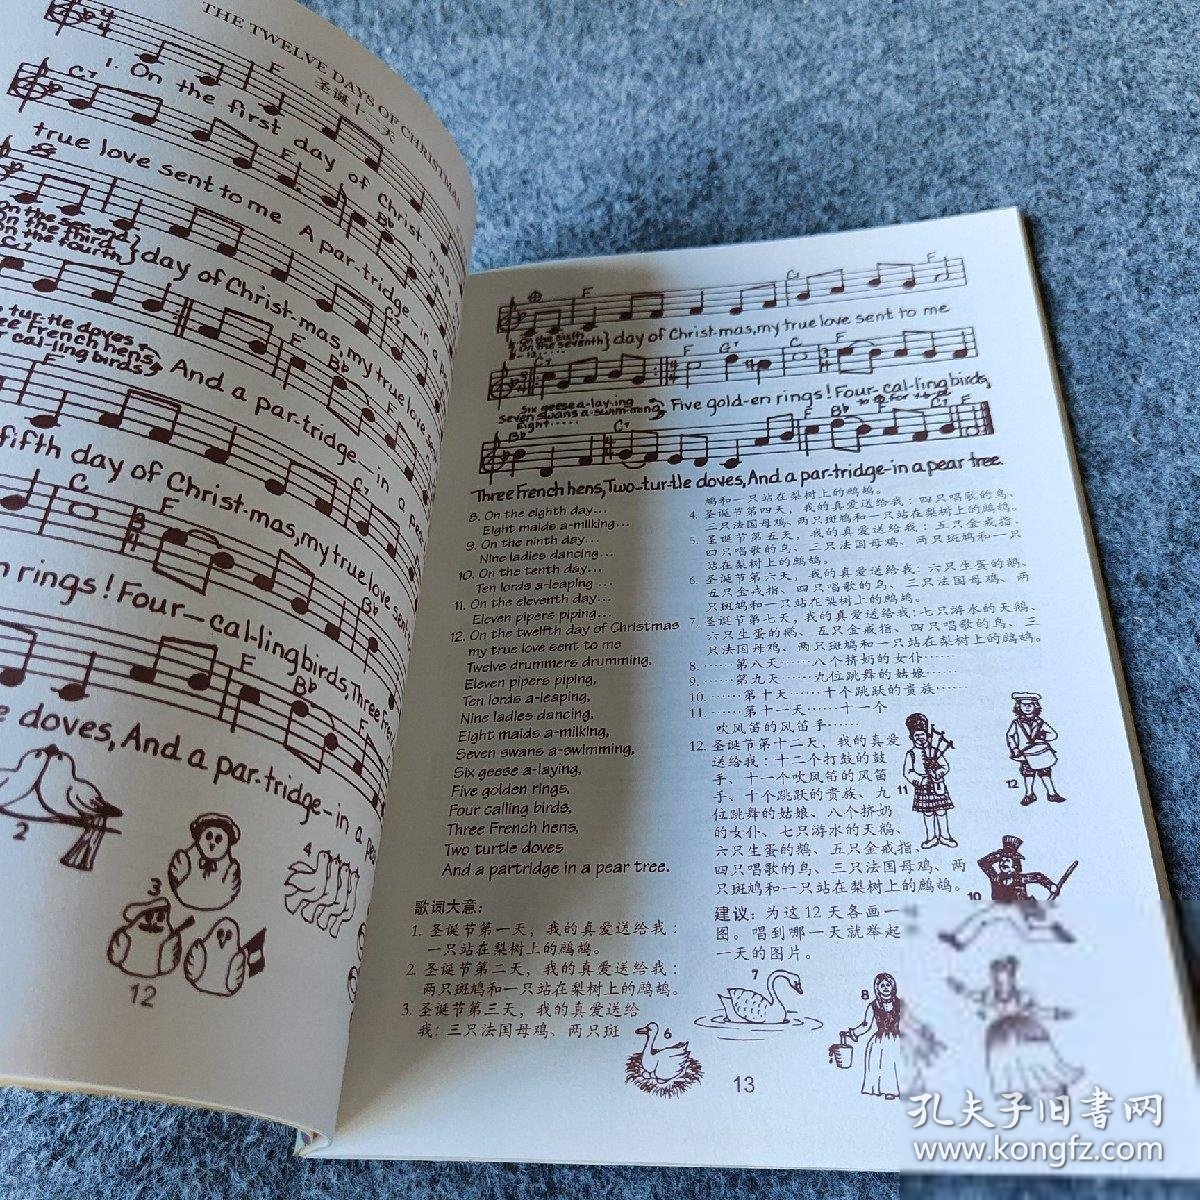 THE TWELVE DAYS OF CHRISTMAS
圣诞十二天
1. On the first day of Christ-mas
true love sent to me A par-tridge-in a
on the second
on the third
on the fourth
day of Christ-mas, my true love
tur-tle doves
French hens,
cal-ling birds,
And a par-tridge-in a
fifth day of Christ-mas, my true love
rings! Four-cal-ling birds, Three
doves, And a par-tridge-in a
2
3
4
12
on the sixth
on the seventh
day of Christ-mas, my true love sent to me
Six geese a-lay-ing
Seven swans a-swim-ming,
Eight.....
Five gold-en rings! Four-cal-ling birds,
Three French hens, Two-tur-tle doves, And a par-tridge-in a pear tree.
8. On the eighth day...
Eight maids a-milking...
9. On the ninth day...
Nine ladies dancing...
10. On the tenth day...
Ten lords a-leaping ...
11. On the eleventh day...
Eleven pipers piping...
12. On the twelfth day of Christmas
my true love sent to me
Twelve drummers drumming,
Eleven pipers piping,
Ten lords a-leaping,
Nine ladies dancing,
Eight maids a-milking,
Seven swans a-swimming,
Six geese a-laying,
Five golden rings,
Four calling birds,
Three French hens,
Two turtle doves
And a partridge in a pear tree.
歌词大意：
1. 圣诞节第一天，我的真爱送给我：
一只站在梨树上的鹧鸪。
2. 圣诞节第二天，我的真爱送给我：
两只斑鸠和一只站在梨树上的鹧鸪。
3. 圣诞节第三天，我的真爱送给
我：三只法国母鸡、两只斑
鸠和一只站在梨树上的鹧鸪。
4. 圣诞节第四天，我的真爱送给我：四只唱歌的鸟、
三只法国母鸡、两只斑鸠和一只站在梨树上的鹧鸪。
5. 圣诞节第五天，我的真爱送给我：五只金戒指、
四只唱歌的鸟、三只法国母鸡、两只斑鸠和一只
站在梨树上的鹧鸪。
6. 圣诞节第六天，我的真爱送给我：六只生蛋的鹅、
五只金戒指、四只唱歌的鸟、三只法国母鸡、两
只斑鸠和一只站在梨树上的鹧鸪。
7. 圣诞节第七天，我的真爱送给我：七只游水的天鹅、
六只生蛋的鹅、五只金戒指、四只唱歌的鸟、三
只法国母鸡、两只斑鸠和一只站在梨树上的鹧鸪。
8. ……第八天……八个挤奶的女仆……
9. ……第九天……九位跳舞的姑娘……
10. ……第十天……十个跳跃的贵族……
11. ……第十一天……十一个
吹风笛的风笛手……
12. 圣诞节第十二天，我的真爱
送给我：十二个打鼓的鼓
手、十一个吹风笛的风笛
手、十个跳跃的贵族、九
位跳舞的姑娘、八个挤奶
的女仆、七只游水的天鹅、
六只生蛋的鹅、五只金戒指、
四只唱歌的鸟、三只法国母鸡、两
只斑鸠和一只站在梨树上的鹧鸪。
建议：为这12天各画一
图。唱到哪一天就举起
一天的图片。
6
7
8
10
11
12
13
孔夫子旧书网
www.kongfz.com